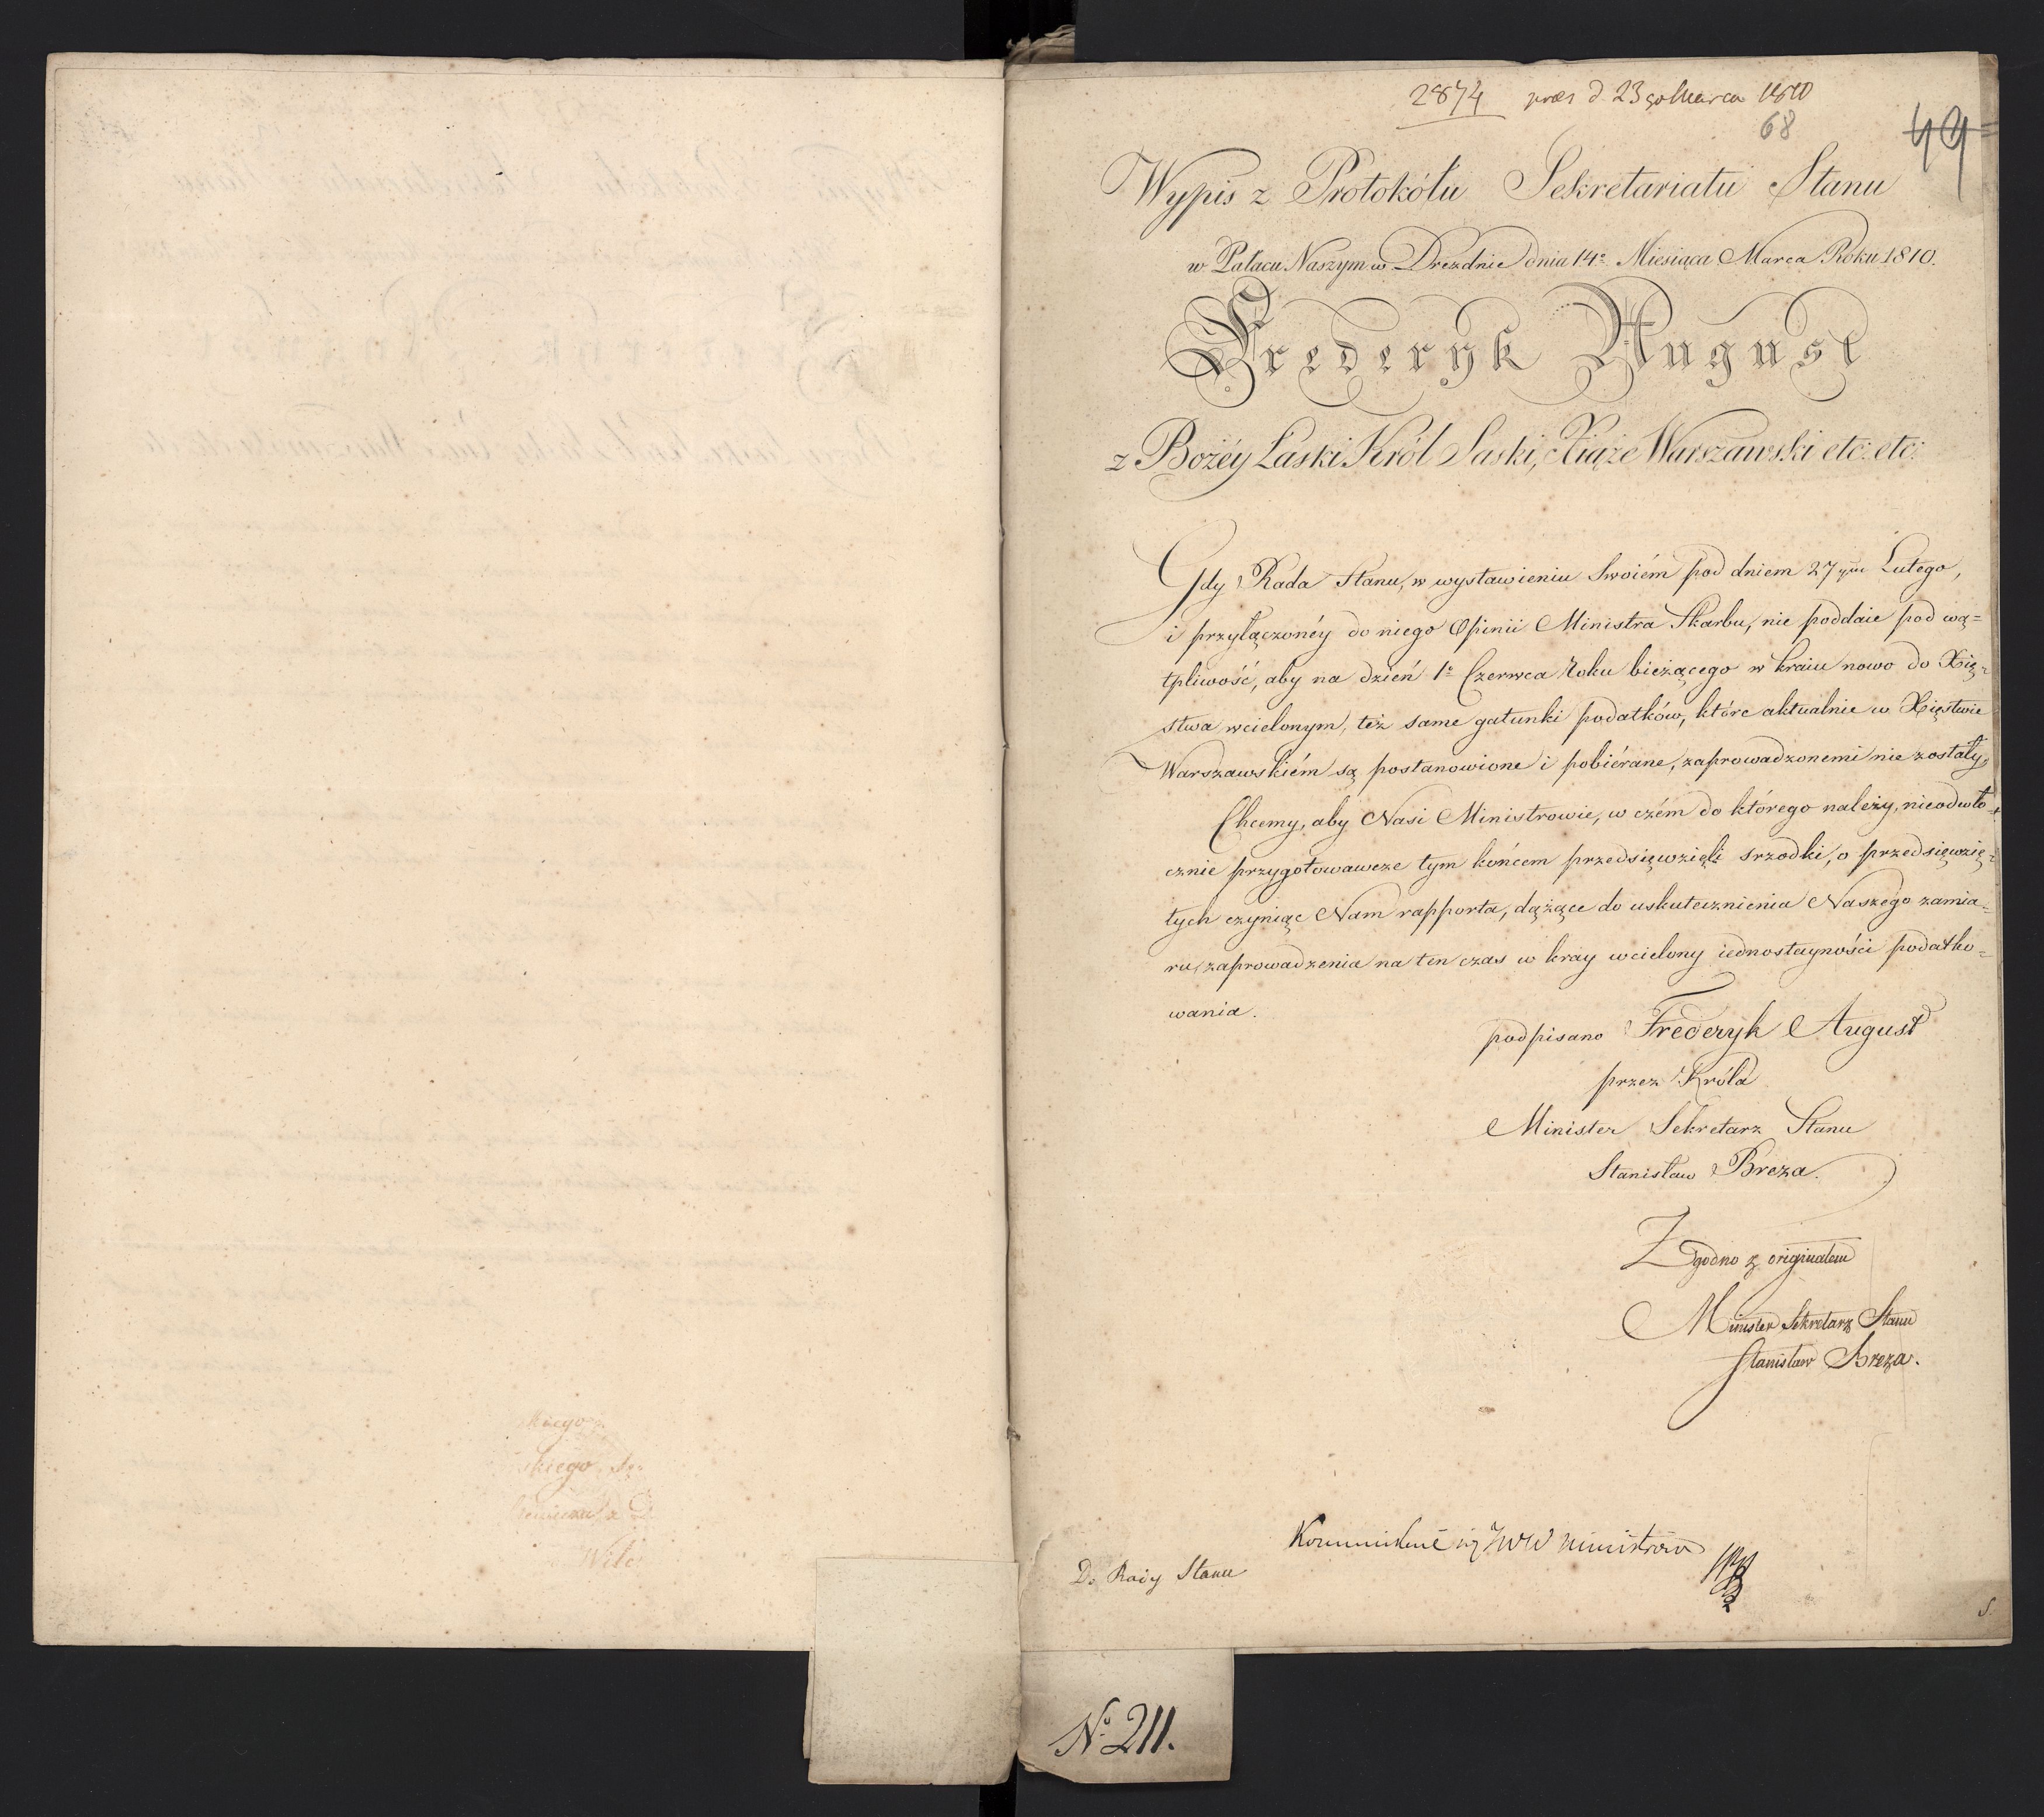 2874 præs d 23go Marca 1810
68
49
Wypis z Protokółu Sekretariatu Stanu
w Pałacu Naszym w Dreznie dnia 14o Miesiąca Marca Roku 1810.
Frederyk August
z Bożéy Łaski Król Saski, Xiąże Warszawski etc: etc:
Gdy Rada Stanu, w wystawieniu Swoiém pod dniem 27ym Lutego,
i przyłączonéy do niego Opinii Ministra Skarbu, nie poddaie pod wą=
tpliwość, aby na dzień 1o Czerwca Roku bieżącego w kraiu nowo do Xię=
stwa wcielonym, też same gatunki podatków, które aktualnie w Xięstwie
Warszawskiém są postanowione i pobiérane, zaprowadzonemi nie zostały,
Chcemy, aby Nasi Ministrowie, w czém do którego należy, nieodwło=
cznie przygotowawcze tym końcem przedsięwzięli srzodki, o przedsięwzię=
tych czyniąc Nam rapporta, dążące do uskutecznienia Naszego zamia=
ru, zaprowadzenia na ten czas w kray wcielony iednostayności podatko=
wania.
podpisano Frederyk August
przez Króla
Minister Sekretarz Stanu
Stanisław Breza.
Zgodno z originałem
Minister Sekretarz Stanu
Stanisław Breza.
JWW Ministrów
Do Rady Stanu
No 211.